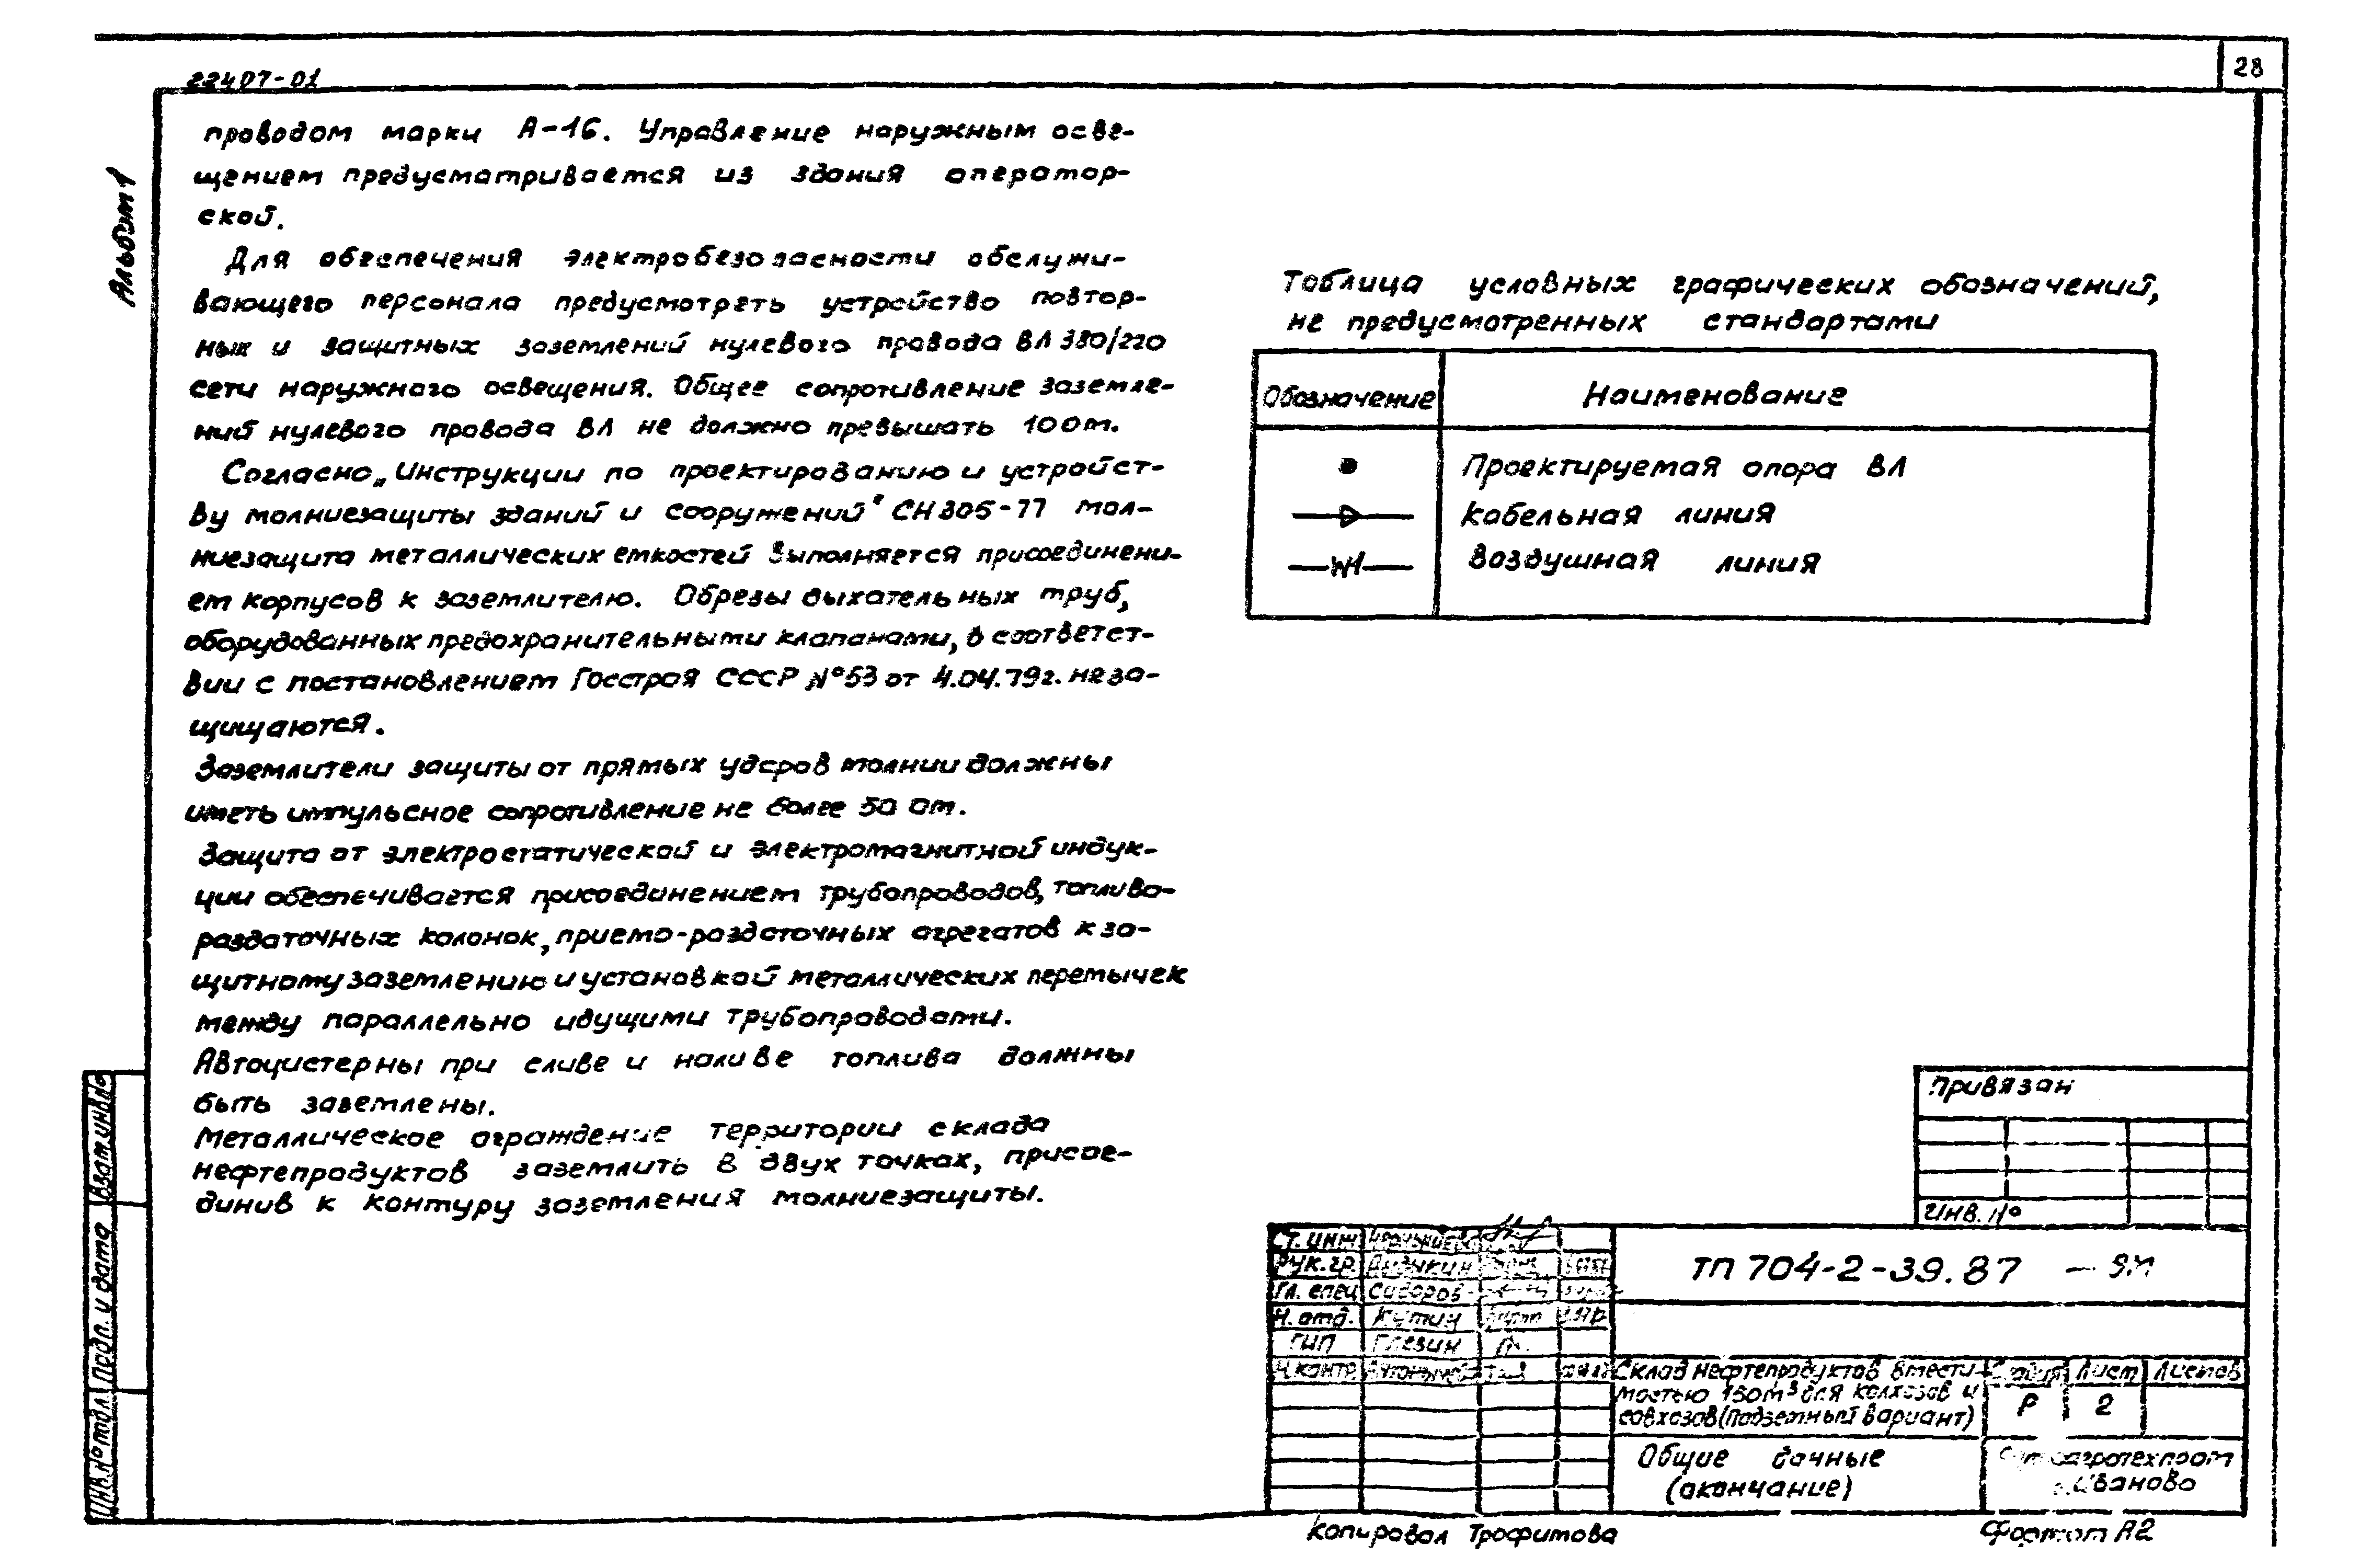 22407-01
28
Альбом 1
проводом марки А-16. Управление наружным осве-
щением предусматривается из здания оператор-
ской.
Для обеспечения электробезопасности обслужи-
вающего персонала предусмотреть устройство повтор-
ных и защитных заземлений нулевого провода ВЛ 380/220
сети наружного освещения. Общее сопротивление заземле-
ний нулевого провода ВЛ не должно превышать 10 Ом.
Согласно „Инструкции по проектированию и устройст-
ву молниезащиты зданий и сооружений" СН 305-77 мол-
ниезащита металлических емкостей выполняется присоединени-
ем корпусов к заземлителю. Обрезы дыхательных труб,
оборудованных предохранительными клапанами, в соответст-
вии с постановлением Госстроя СССР №53 от 4.04.79г. не за-
щищаются.
Заземлители защиты от прямых ударов молнии должны
иметь импульсное сопротивление не более 50 Ом.
Защита от электростатической и электромагнитной индук-
ции обеспечивается присоединением трубопроводов, топливо-
раздаточных колонок, приемо-раздаточных агрегатов к за-
щитному заземлению и установкой металлических перемычек
между параллельно идущими трубопроводами.
Автоцистерны при сливе и наливе топлива должны
быть заземлены.
Металлическое ограждение территории склада
нефтепродуктов заземлить в двух точках, присое-
динив к контуру заземления молниезащиты.
Таблица условных графических обозначений,
не предусмотренных стандартами
Обозначение Наименование
Проектируемая опора ВЛ
Кабельная линия
Воздушная линия
Привязан
Инв. №
Ст. инж.
Рук. гр.
Гл. спец. Сидоров
Н. отд. Кутин
ГИП Глезин
Н. контр.
ТП 704-2-39.87 – ЭМ
Склад нефтепродуктов вмести-
мостью 150м³ для колхозов и
совхозов (подземный вариант)
Стадия Лист Листов
Р 2
Общие данные
(окончание)
Иваново
Взам. инв. №
Подп. и дата
Инв. № подл.
Копировал Трофимова
Формат А2